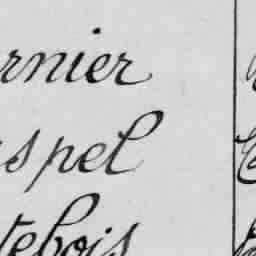 rnier
spel
tebois